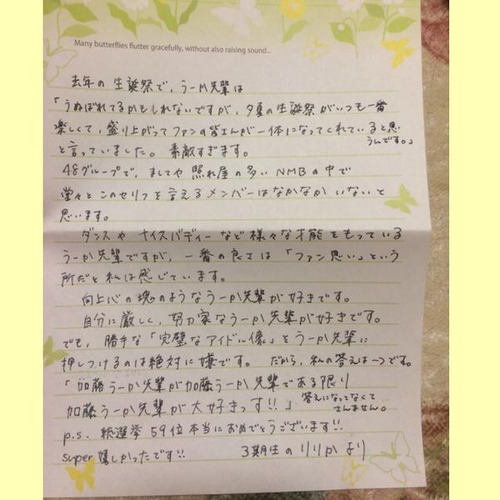 Many butterflies flutter gracefully, without also raising sound...
去年の生誕祭で、うーか先輩は
「うぬぼれてるかもしれないですが、夕夏の生誕祭がいつも一番
楽しくて、盛り上がってファンの皆さんが一体になってくれていると思
うんです。」
と言っていました。素敵すぎます。
48グループで、ましてや照れ屋の多いNMBの中で
堂々とこのセリフを言えるメンバーはなかなかいないと
思います。
ダンスやナイスバディーなど様々な才能をもっている
うーか先輩ですが、一番の良さは「ファン思い」という
所だと私は感じています。
向上心の塊のようなうーか先輩が好きです。
自分に厳しく、努力家なうーか先輩が好きです。
でも、勝手な「完璧なアイドル像」とうーか先輩に
押しつけるのは絶対に嫌です。だから、私の答えは一つです。
「加藤うーか先輩が加藤うーか先輩である限り
加藤うーか先輩が大好きっす!!」
答えになってなくて
すんません。
p.s. 総選挙59位本当におめでとうございます!!
super嬉しかったです!!
3期生のりりかより